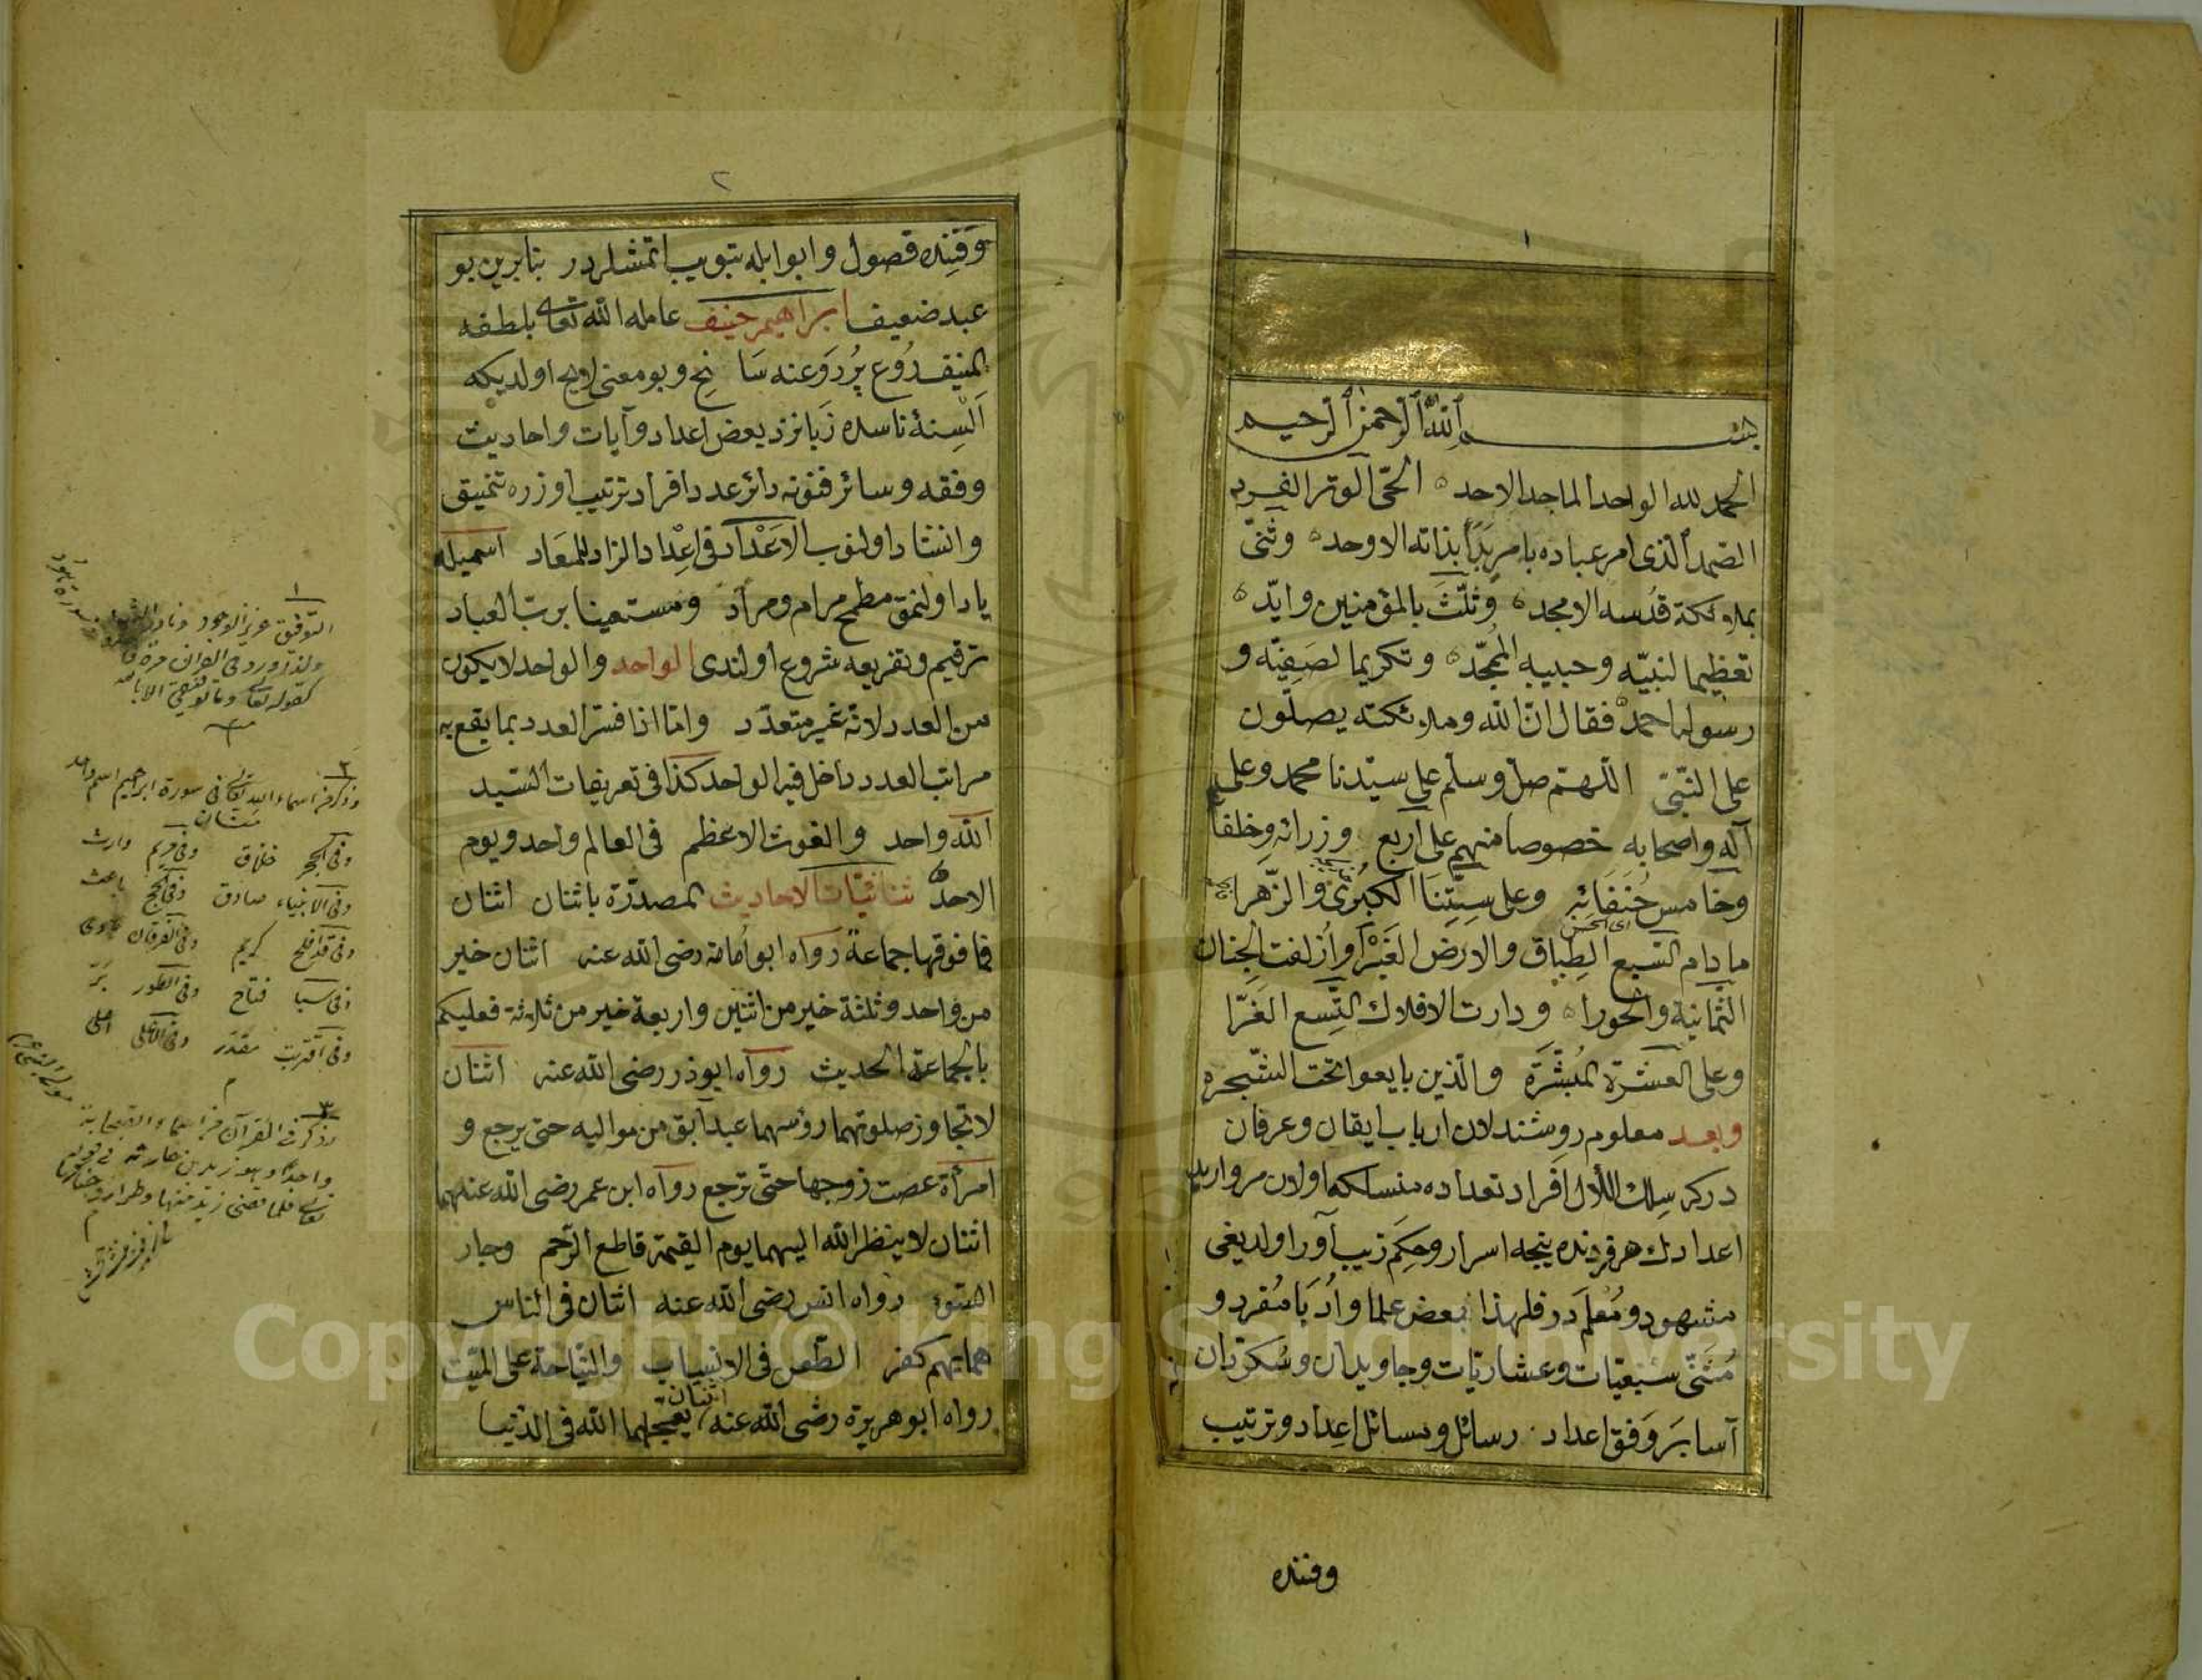 ١
بسم الله الرحمن الرحيم
الحمد لله الواحد الماجد الاحد الحي الوتر الفرد
الصمد الذي امر عباده بامر بدأ بذاته الاوحد وثنى
بملائكة قدسه الامجد وثلث بالمؤمنين وايد
تعظيما لنبيه وحبيبه الممجد وتكريما لصفيه و
رسوله احمد فقال ان الله وملائكته يصلون
على النبي اللهم صل وسلم على سيدنا محمد وعلى
آله واصحابه خصوصا منهم على اربع وزرائه وخلفا
وخامس حنفائه وعلى ستنا الكبرى والزهرا
اى الحسن
ما دام السبع الطباق والارض الغبرا وازلفت الجنان
الثمانية والحورا ودارت الافلاك التسع الغرا
وعلى العشرة المبشرة والذين بايعوا تحت الشجره
وبعد معلوم روشندلان ارباب ايقان وعرفان
دركه سلك اللآل افراد تعداده منسلكه اولان مرواريد
اعدادك هر فردنده نيجه اسرار وحكم زيب آور اولديغى
مشهود ومعلم در فلهذا بعض علما وادبا مفرد و
مثنى سبعيات وعشاريات وجاويدان وسكردان
آسا بر وفق اعداد رسائل ومسائل اعداد وترتيب
وفننده
٢
وفننده فصول وابوابله تبويب ايتمشلردر بنابرين بو
عبد ضعيف ابراهيم حنيف عامله الله تعالى بلطفه
المنيف روع پر روعنه سانح وبو معنى لايح اولديكه
السنۀ ناسده زبانزد بعض اعداد وآيات واحاديث
وفقه وسائر فنونه دائر عدد افراد ترتيب اوزره تنميق
وانشاد اولنوب الاعداد فى اعداد الزاد للمعاد اسميله
ياد اولنمق مطمح مرام ومراد ومستعينا برب العباد
ترقيم وتفريعه شروع اولندى الواحد والواحد لا يكون
من العدد لانه غير متعدد واما اذا فسر العدد بما يقع به
مراتب العدد داخل فيه الواحد كذا فى تعريفات السيد
الله واحد والغوث الاعظم فى العالم واحد ويوم
الاحد ثنائيات الاحاديث المصدرة باثنان اثنان
فما فوقها جماعة رواه ابو امامة رضى الله عنه اثنان خير
من واحد وثلثة خير من اثنين واربعة خير من ثلاثة فعليكم
بالجماعة الحديث رواه ابوذر رضى الله عنه اثنان
لا تجاوز صلوتهما رؤسهما عبد آبق من مواليه حتى يرجع و
امرأة عصت زوجها حتى ترجع رواه ابن عمر رضى الله عنهما
اثنان لا ينظر الله اليهما يوم القيمة قاطع الرحم وجار
السوء رواه انس رضى الله عنه اثنان فى الناس
هما بهم كفر الطعن فى الانساب والنياحة على الميت
رواه ابو هريرة رضى الله عنه اثنان يعجلهما الله فى الدنيا
١
التوفيق عزيز الوجود
ولذا ورد فى القرآن مرة
كقوله تعالى وما توفيقى الا بالله
٢
وذكر من اسماء الله تعالى فى سورة ابرهيم اسم واحد
وفى الحجر خلاق وفى مريم وارث
وفى الانبياء صادق وفى الحج باعث
وفى قد افلح كريم وفى الفرقان
وفى سبا فتاح وفى الطور بر
وفى اقتربت مقتدر وفى الاعلى اعلى
٣
وذكر فى القرآن من اسماء الصحابة
واحدا وهو زيد بن حارثه فى قوله
تعالى فلما قضى زيد منها وطرا